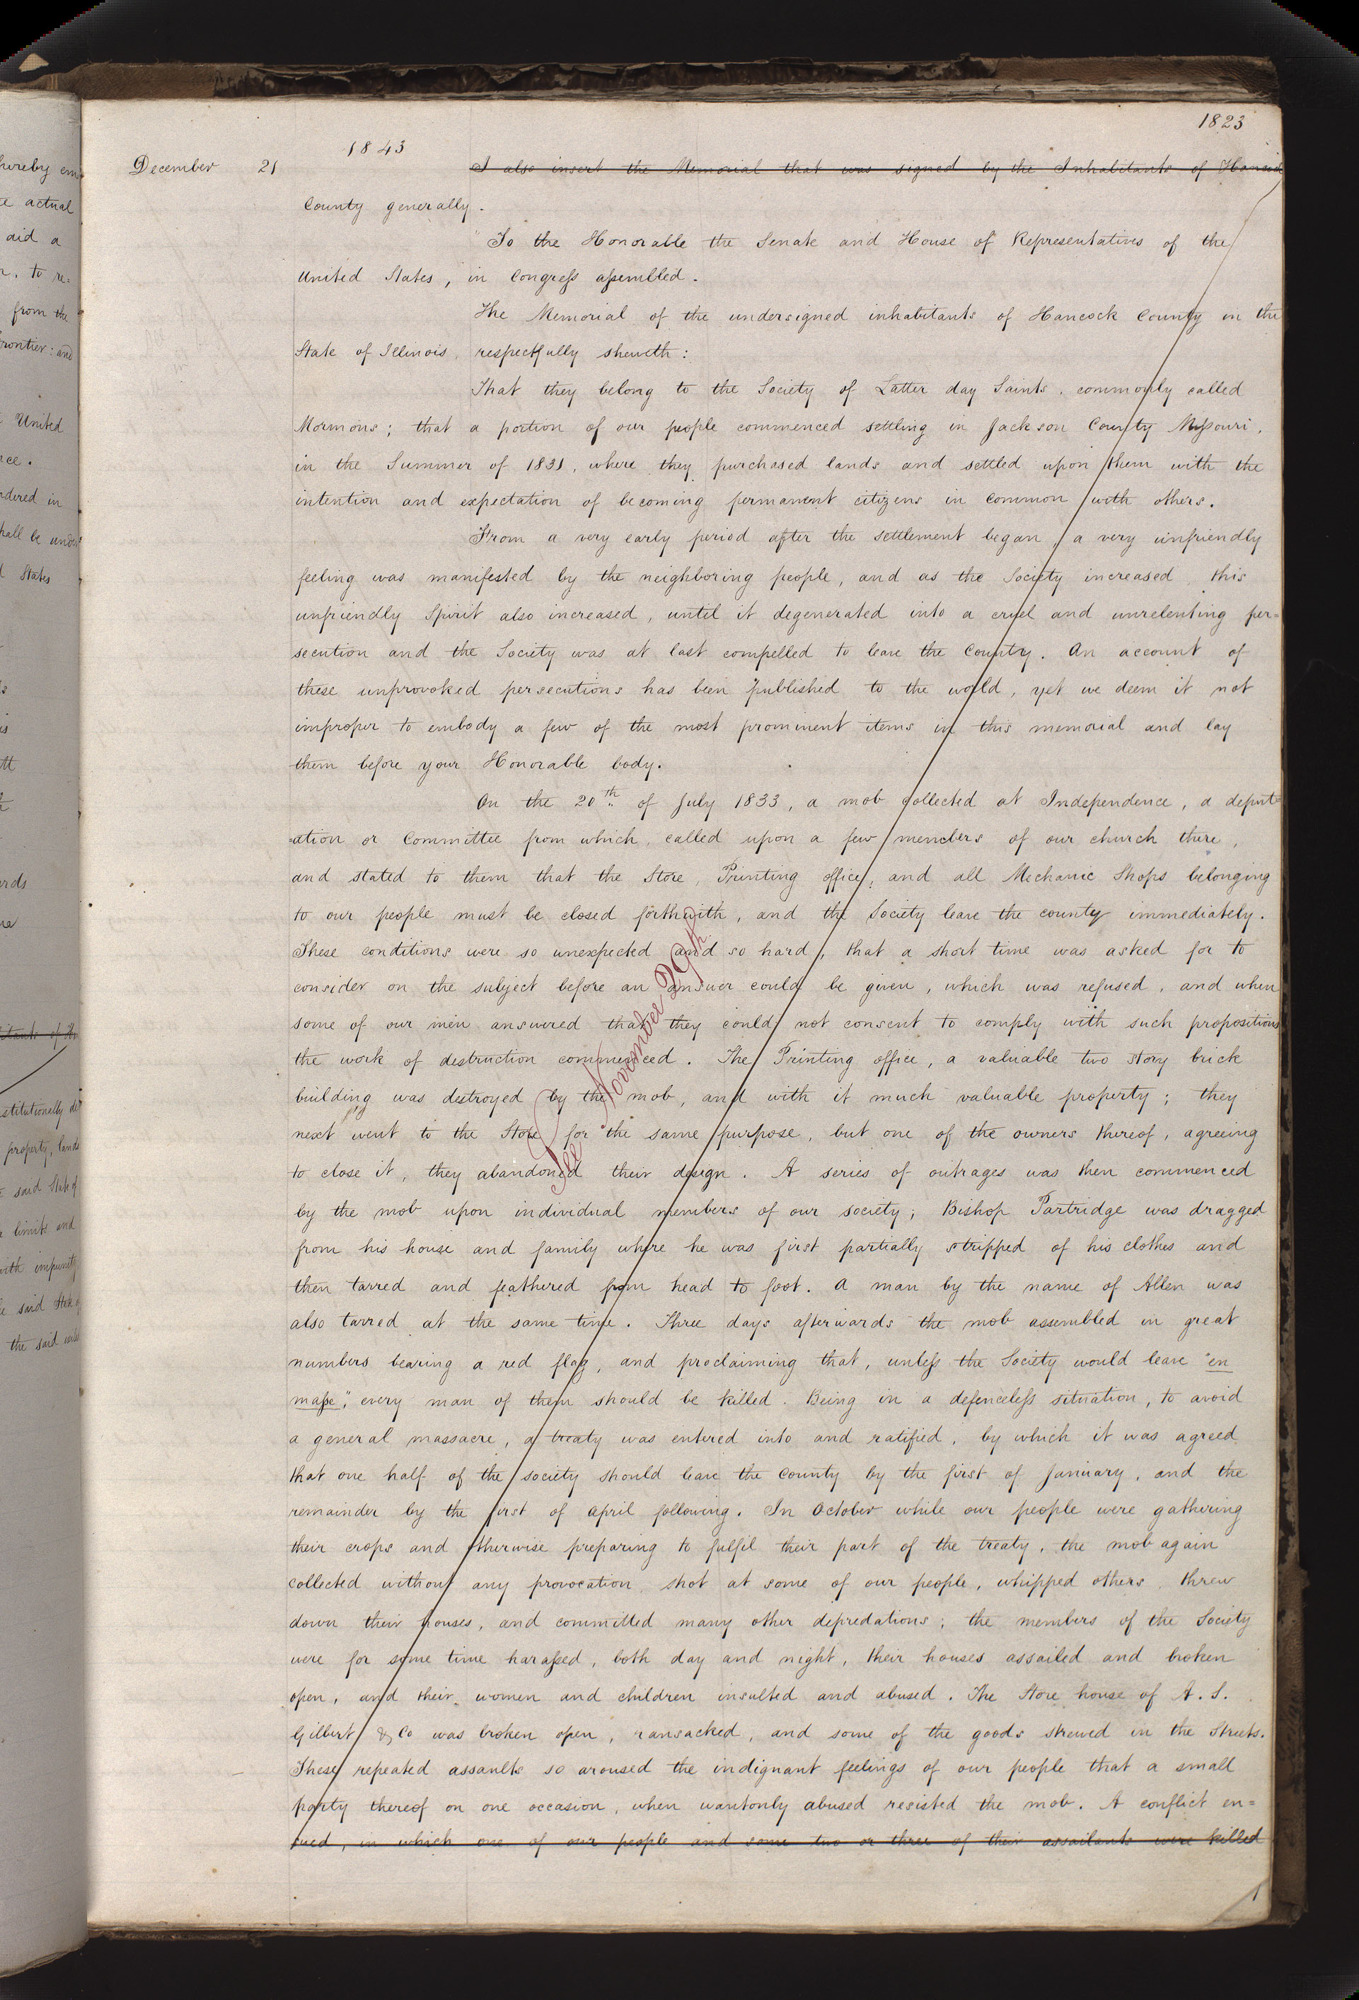 hereby em
e actual
aid a
r. to re=
from the
frontier: and
United
ce.
dered in
hall be under
States
is
tt
rds
ne
stitutionally di
property, lands
said State of
limits and
with impunity
said State of
the said
1823
1843
December 21 I also insert the Memorial that was signed by the Inhabitants of Hancock
County generally.
"To the Honorable the Senate and House of Representatives of the
United States, in Congress assembled.
The Memorial of the undersigned inhabitants of Hancock County in the
State of Illinois, respectfully sheweth:
That they belong to the Society of Latter day Saints, commonly called
Mormons; that a portion of our people commenced settling in Jackson County Missouri,
in the Summer of 1831, where they purchased lands and settled upon them with the
intention and expectation of becoming permanent citizens in common with others.
From a very early period after the settlement began, a very unfriendly
feeling was manifested by the neighboring people, and as the Society increased this
unfriendly Spirit also increased, until it degenerated into a cruel and unrelenting per=
secution and the Society was at last compelled to leave the County. An account of
these unprovoked persecutions has been published to the world, yet we deem it not
improper to embody a few of the most prominent items in this memorial and lay
them before your Honorable body.
On the 20th. of July 1833, a mob collected at Independence, a deput=
ation or Committee from which, called upon a few members of our church there,
and stated to them that the Store, Printing office, and all Mechanic Shops belonging
to our people must be closed forthwith, and the Society leave the county immediately.
These conditions were so unexpected and so hard, that a short time was asked for to
consider on the subject before an answer could be given, which was refused, and when
some of our men answered that they could not consent to comply with such propositions
the work of destruction commenced. The Printing office, a valuable two story brick
building was destroyed by the mob, and with it much valuable property; they
next went to the Store for the same purpose, but one of the owners thereof, agreeing
to close it, they abandoned their design. A series of outrages was then commenced
by the mob upon individual members of our society; Bishop Partridge was dragged
from his house and family where he was first partially stripped of his clothes and
then tarred and feathered from head to foot. A man by the name of Allen was
also tarred at the same time. Three days afterwards the mob assembled in great
numbers bearing a red flag, and proclaiming that, unless the Society would leave "en
masse," every man of them should be killed. Being in a defenceless situation, to avoid
a general massacre, a treaty was entered into and ratified, by which it was agreed
that one half of the society should leave the County by the first of January, and the
remainder by the first of April following. In October while our people were gathering
their crops and otherwise preparing to fulfil their part of the treaty, the mob again
collected without any provocation, shot at some of our people, whipped others, threw
down their houses, and committed many other depredations; the members of the Society
were for some time harassed, both day and night, their houses assailed and broken
open, and their women and children insulted and abused. The Store house of A. S.
Gilbert & Co was broken open, ransacked, and some of the goods strewed in the Streets.
These repeated assaults so aroused the indignant feelings of our people that a small
party thereof on one occasion, when wantonly abused resisted the mob. A conflict en=
sued, in which one of our people and some two or three of their assailants were killed
See November 29th.